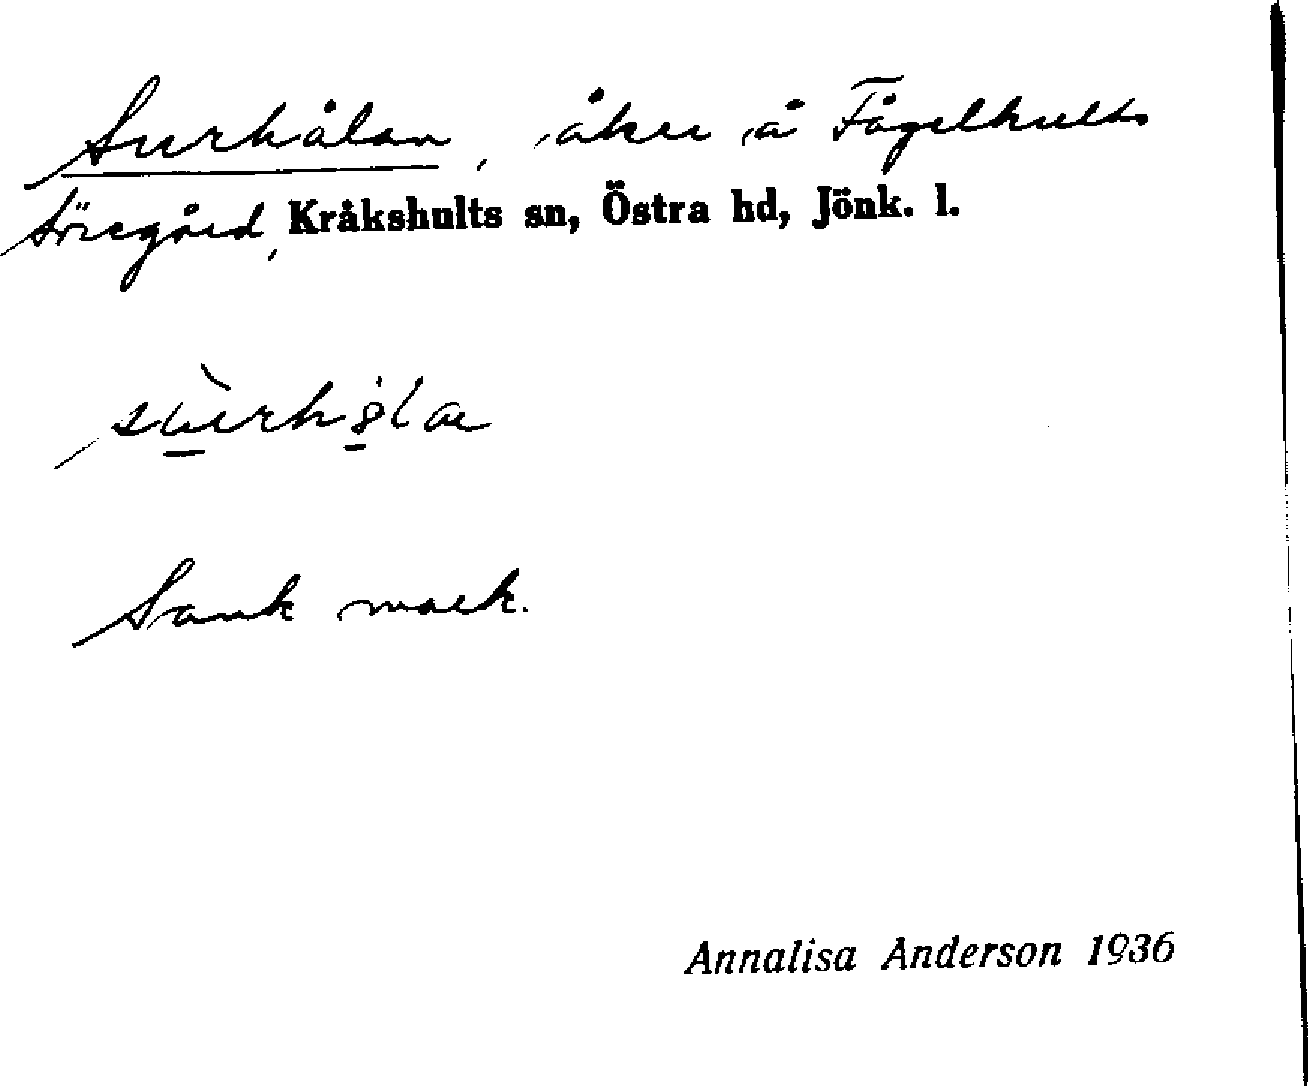 Surhålan, åker å Fågelhults
Söregård, Kråkshults sn, Östra hd, Jönk. l.
Sank mark.
Annalisa Anderson 1936